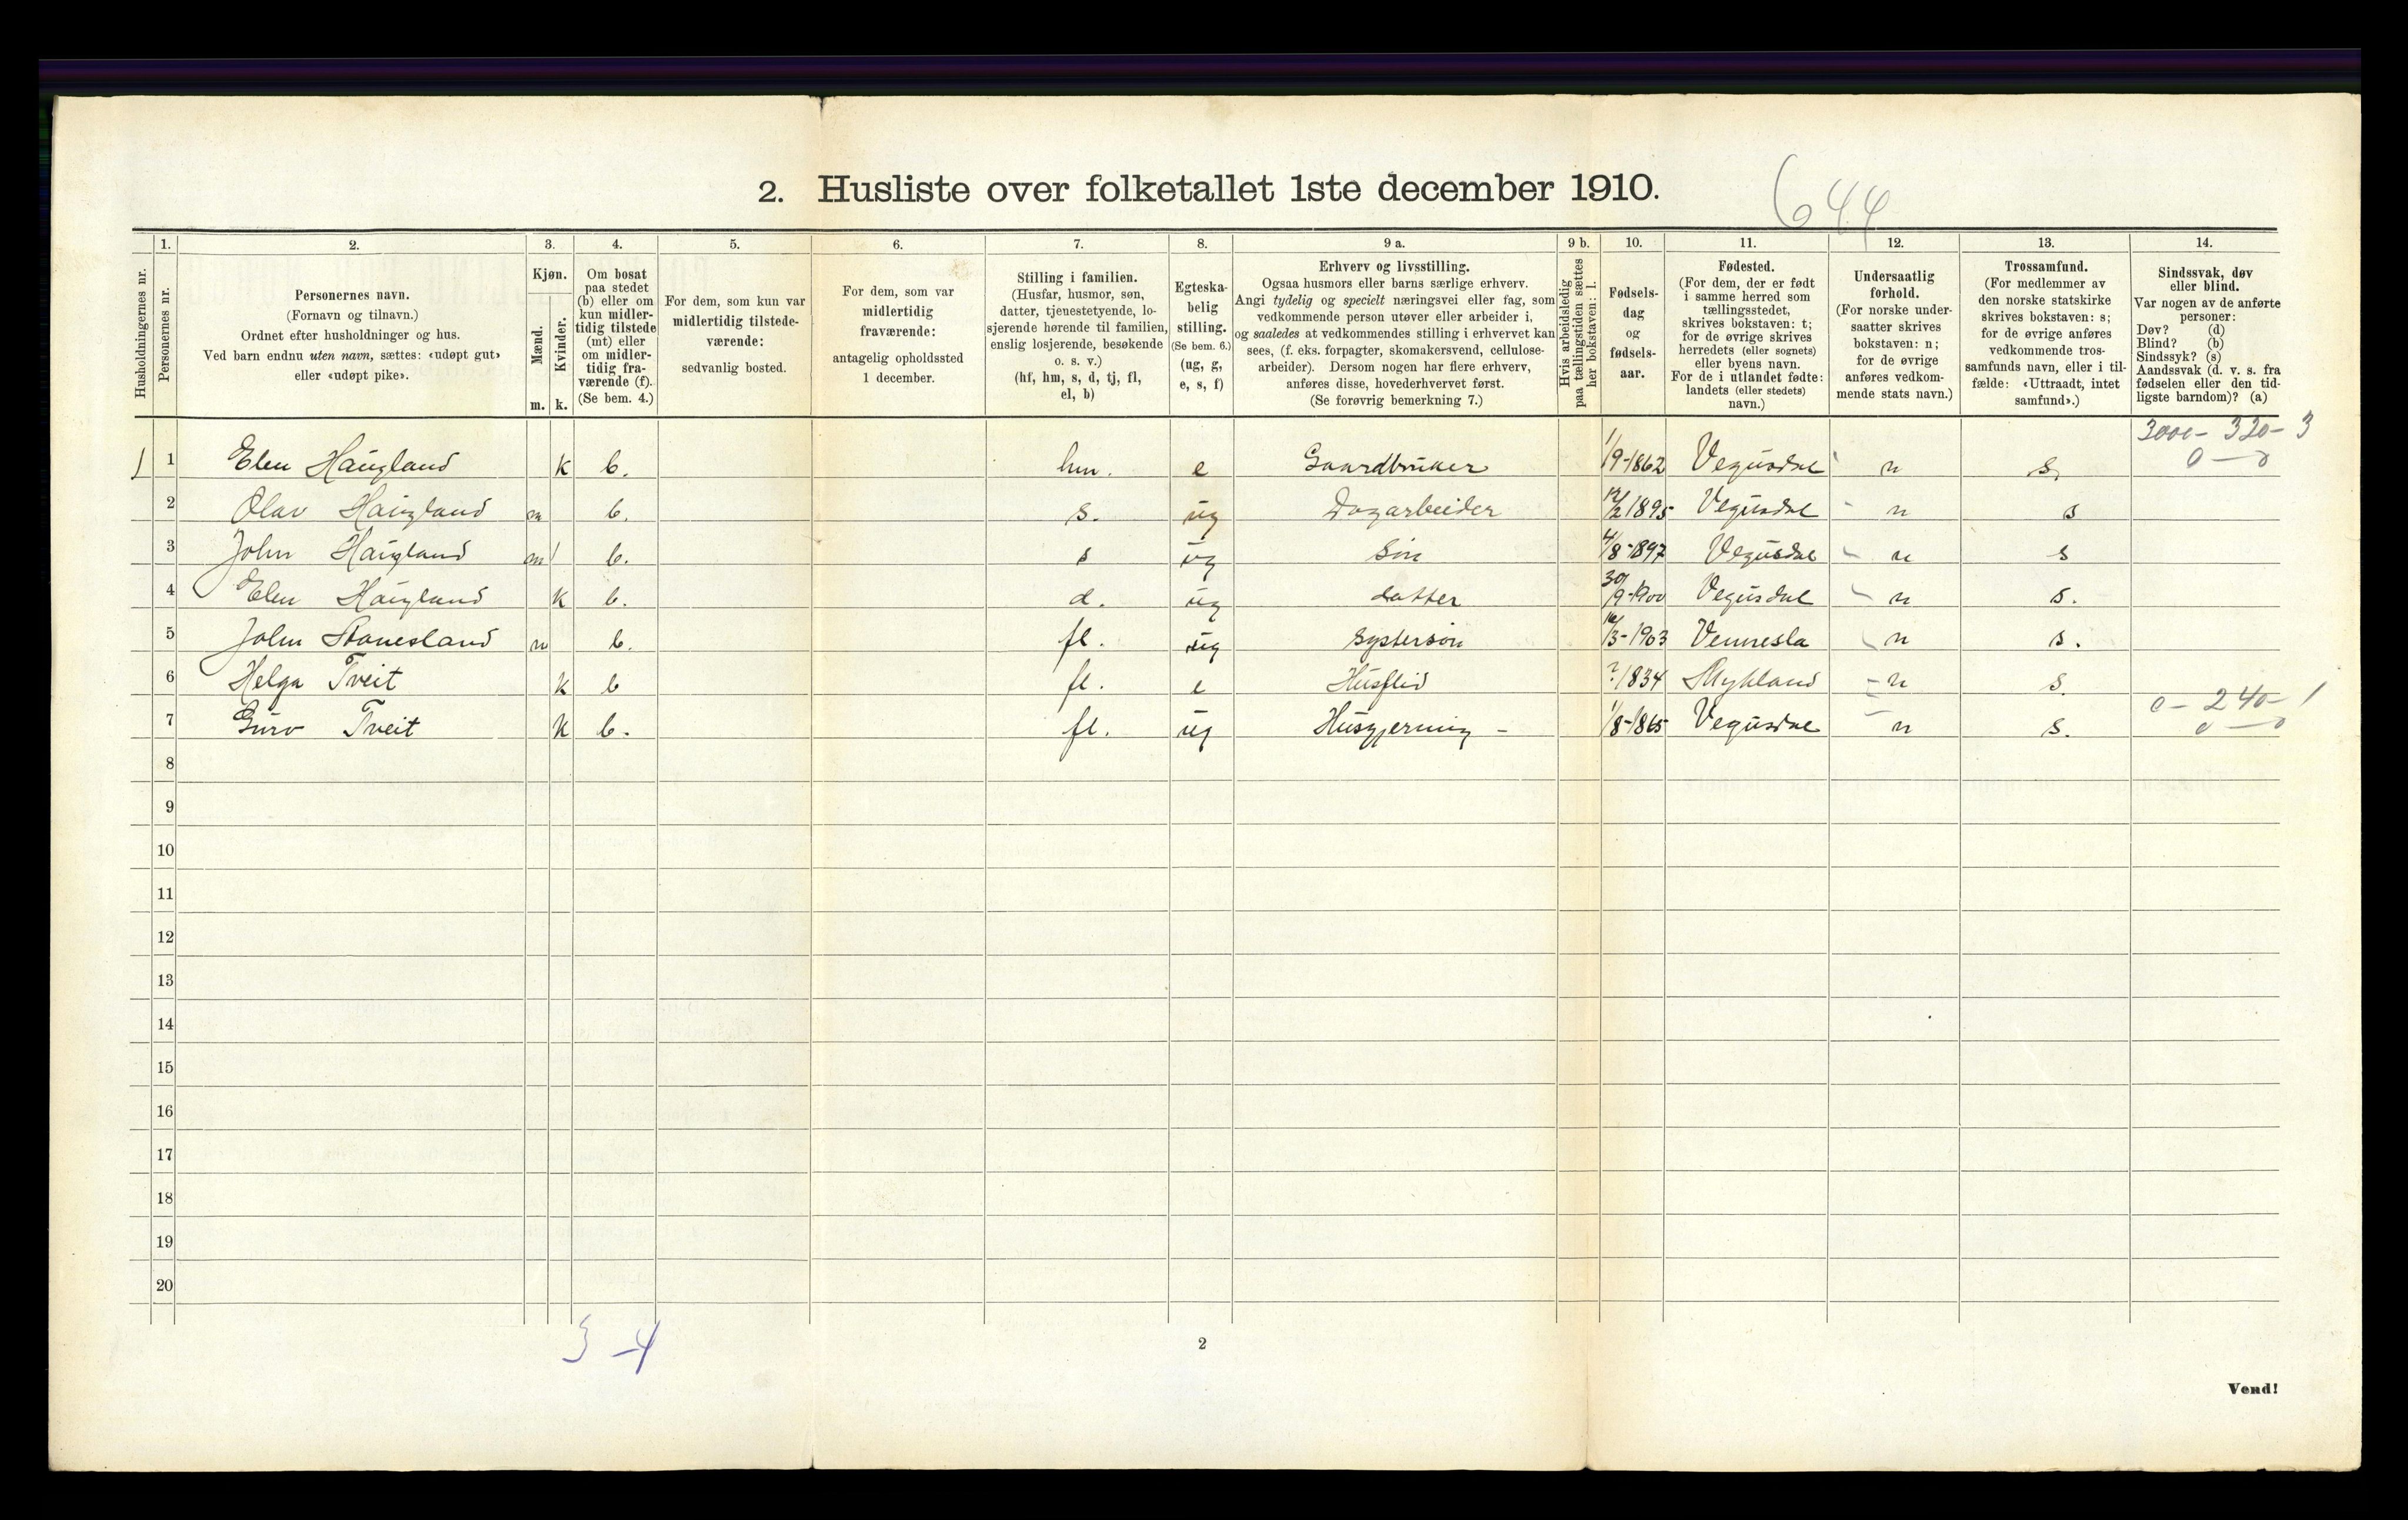 2. Husliste over folketallet 1ste december 1910.
644
Husholdningernes nr.
1.
Personernes nr.
2.
Personernes navn.
(Fornavn og tilnavn.)
Ordnet efter husholdninger og hus.
Ved barn endnu uten navn, sættes: «udøpt gut»
eller «udøpt pike».
3.
Kjøn.
Mænd.
Kvinder.
m.
k.
4.
Om bosat
paa stedet
(b) eller om
kun midler-
tidig tilstede
(mt) eller
om midler-
tidig fra-
værende (f).
(Se bem. 4.)
5.
For dem, som kun var
midlertidig tilstede-
værende:
sedvanlig bosted.
6.
For dem, som var
midlertidig
fraværende:
antagelig opholdssted
1 december.
7.
Stilling i familien.
(Husfar, husmor, søn,
datter, tjenestetyende, lo-
sjerende hørende til familien,
enslig losjerende, besøkende
o. s. v.)
(hf, hm, s, d, tj, fl,
el, b)
8.
Egteska-
belig
stilling.
(Se bem. 6.)
(ug, g,
e, s, f)
9 a.
Erhverv og livsstilling.
Ogsaa husmors eller barns særlige erhverv.
Angi tydelig og specielt næringsvei eller fag, som
vedkommende person utøver eller arbeider i,
og saaledes at vedkommendes stilling i erhvervet kan
sees, (f. eks. forpagter, skomakersvend, cellulose-
arbeider). Dersom nogen har flere erhverv,
anføres disse, hovederhvervet først.
(Se forøvrig bemerkning 7.)
9 b.
Hvis arbeidsledig
paa tællingstiden sættes
her bokstaven: l.
10.
Fødsels-
dag
og
fødsels-
aar.
11.
Fødested.
(For dem, der er født
i samme herred som
tællingsstedet,
skrives bokstaven: t;
for de øvrige skrives
herredets (eller sognets)
eller byens navn.
For de i utlandet fødte:
landets (eller stedets)
navn.)
12.
Undersaatlig
forhold.
(For norske under-
saatter skrives
bokstaven: n;
for de øvrige
anføres vedkom-
mende stats navn.)
13.
Trossamfund.
(For medlemmer av
den norske statskirke
skrives bokstaven: s;
for de øvrige anføres
vedkommende tros-
samfunds navn, eller i til-
fælde: «Uttraadt, intet
samfund».)
14.
Sindssvak, døv
eller blind.
Var nogen av de anførte
personer:
Døv? (d)
Blind? (b)
Sindssyk? (s)
Aandssvak (d. v. s. fra
fødselen eller den tid-
ligste barndom)? (a)
3000- 320- 3
0 - 0
1 1 Elen Haugland k b. hm. e Gaardbruker 1/9-1862 Vegusdal n s.
2 Olav Haugland m b. s. ug Dagarbeider 12/2 1895 Vegusdal - n s
3 John Haugland m b. s ug Søn 4/8-1897 Vegusdal - n s
4 Elen Haugland k b. d. ug datter 30/9-1900 Vegusdal - n s.
5 John Stanesland m b. fl. ug Systersøn 16/3-1903 Vennesla n s.
6 Helga Tveit k b fl. e Husflid ? 1834 Mykland - n s.
0 - 240- 1
7 Guro Tveit k b. fl. ug Husgjerning - 1/8-1865 Vegusdal - n s. 0 - 0
8
9
10
11
12
13
14
15
16
17
18
19
20
3 - 4
2
Vend!